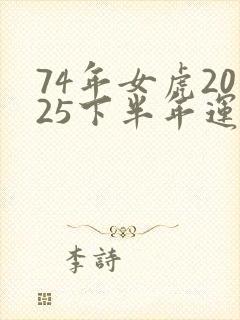 74年女虎20
25下半年運
李詩